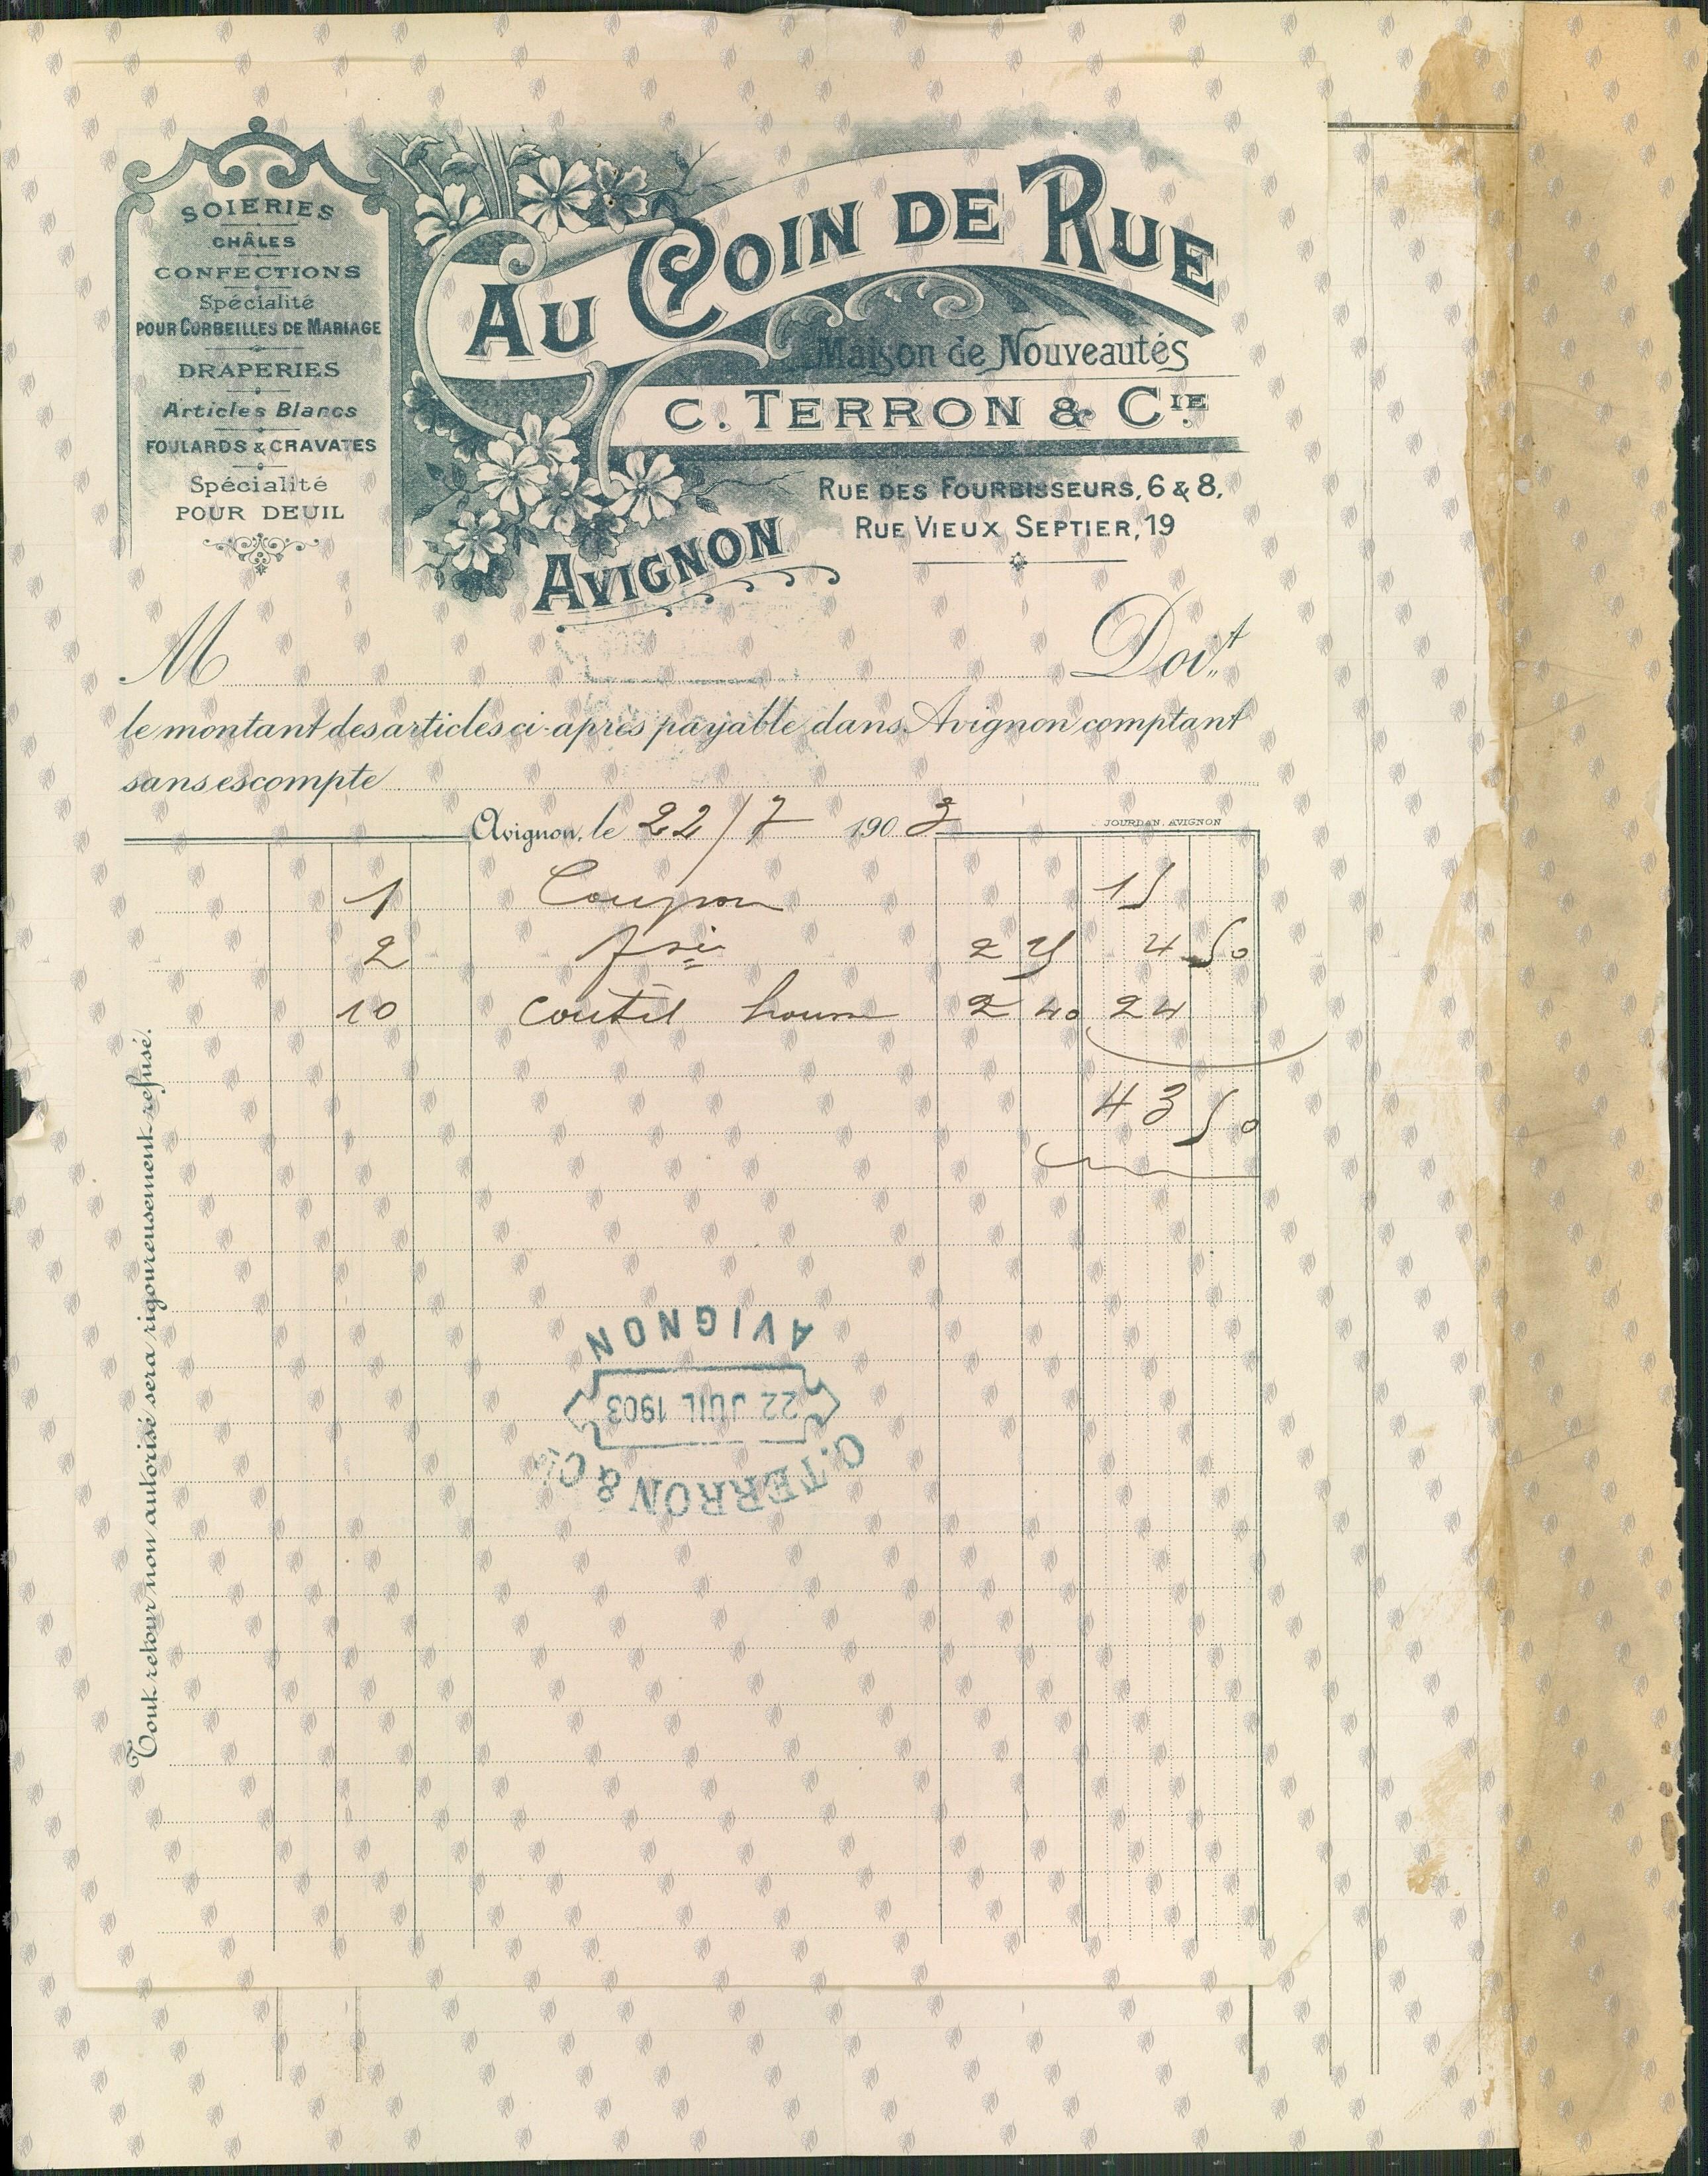 SOIERIES
CHÂLES
CONFECTIONS
Spécialité
POUR CORBEILLES DE MARIAGE
DRAPERIES
Articles Blancs
FOULARDS & CRAVATES
Spécialité
POUR DEUIL
AU COIN DE RUE
Maison de Nouveautés
C. TERRON & CIE
RUE DES FOURBISSEURS, 6 & 8,
RUE VIEUX SEPTIER, 19
AVIGNON
M Doit
le montant des articles ci-après payable dans Avignon comptant
sans escompte
Avignon, le 22/7 1903
JOURDAN, AVIGNON
1 Coupon 15
2 2 25 4 50
10 coutil housse 2 40 24
43 50
Tout retour non autorisé sera rigoureusement refusé.
C. TERRON & Cie
22 JUIL 1903
AVIGNON